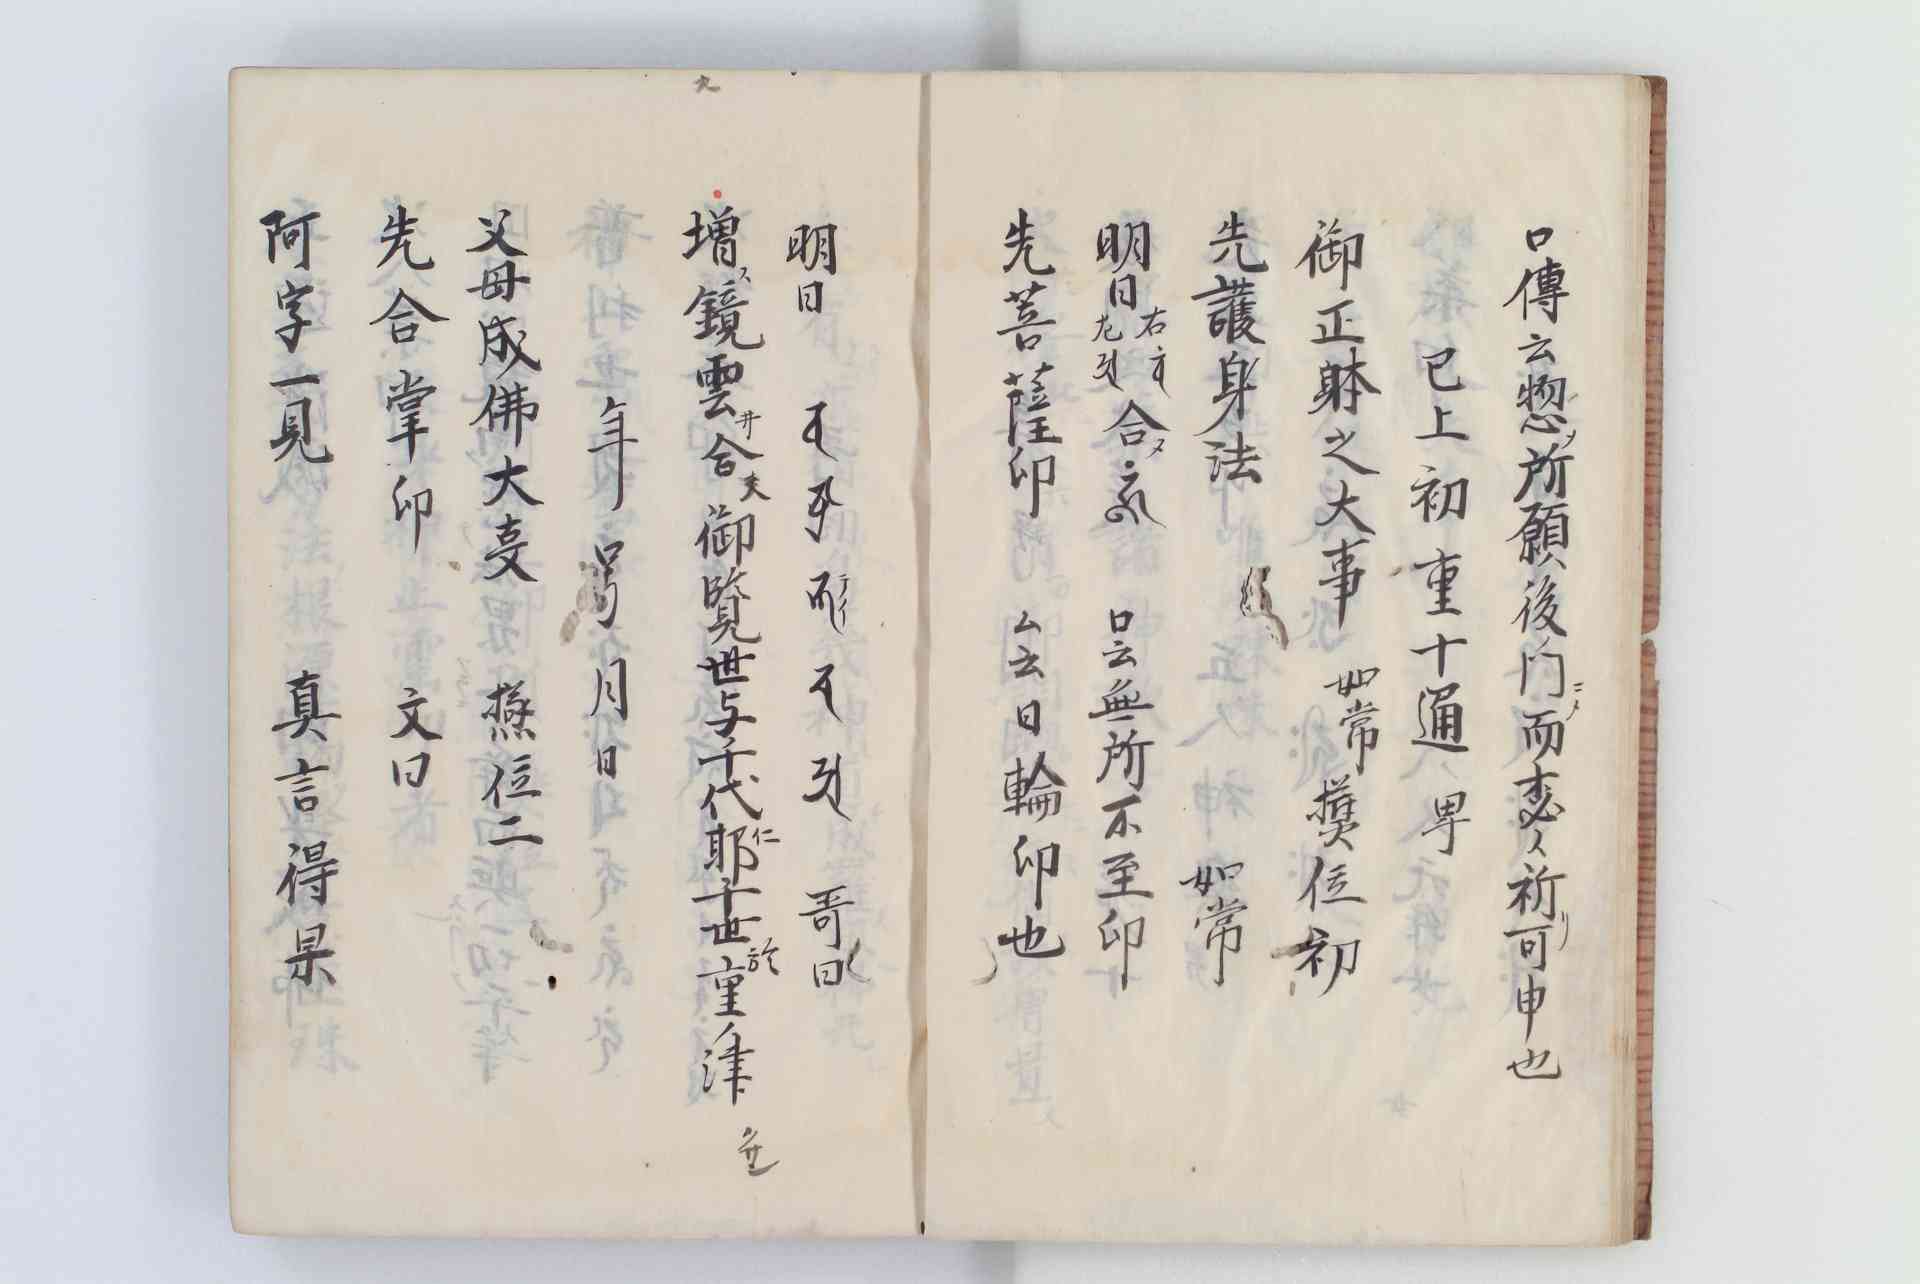 口傳云惣〆所願後門ニ〆而委人祈リ可申也
已上初重十通畢
御正躰之大事 如常 初
先護身法 如常
明日 右 左 合〆 口云無所不至印
先菩薩印 云日輪印也
明日 哥曰
増ス鏡雲井合 御覧世与千代耶仁千世於重津
年号月日
父母成佛大㕝 位二
先合掌印 文曰
阿字一見 真言得果